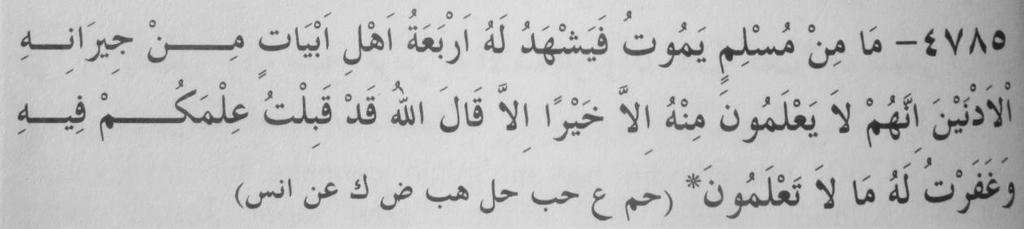 ٤٧٨٥- مَا مِنْ مُسْلِمٍ يَمُوتُ فَيَشْهَدُ لَهُ اَرْبَعَةُ اَهْلِ اَبْيَاتٍ مِنْ جِيرَانِهِ
اْلاَدْنَيْنَ اِنَّهُمْ لاَ يَعْلَمُونَ مِنْهُ اِلاَّ خَيْرًا اِلاَّ قَالَ اللهُ قَدْ قَبِلْتُ عِلْمَكُمْ فِيهِ
وَغَفَرْتُ لَهُ مَا لاَ تَعْلَمُونَ* (حم ع حب حل هب ض ك عن انس)